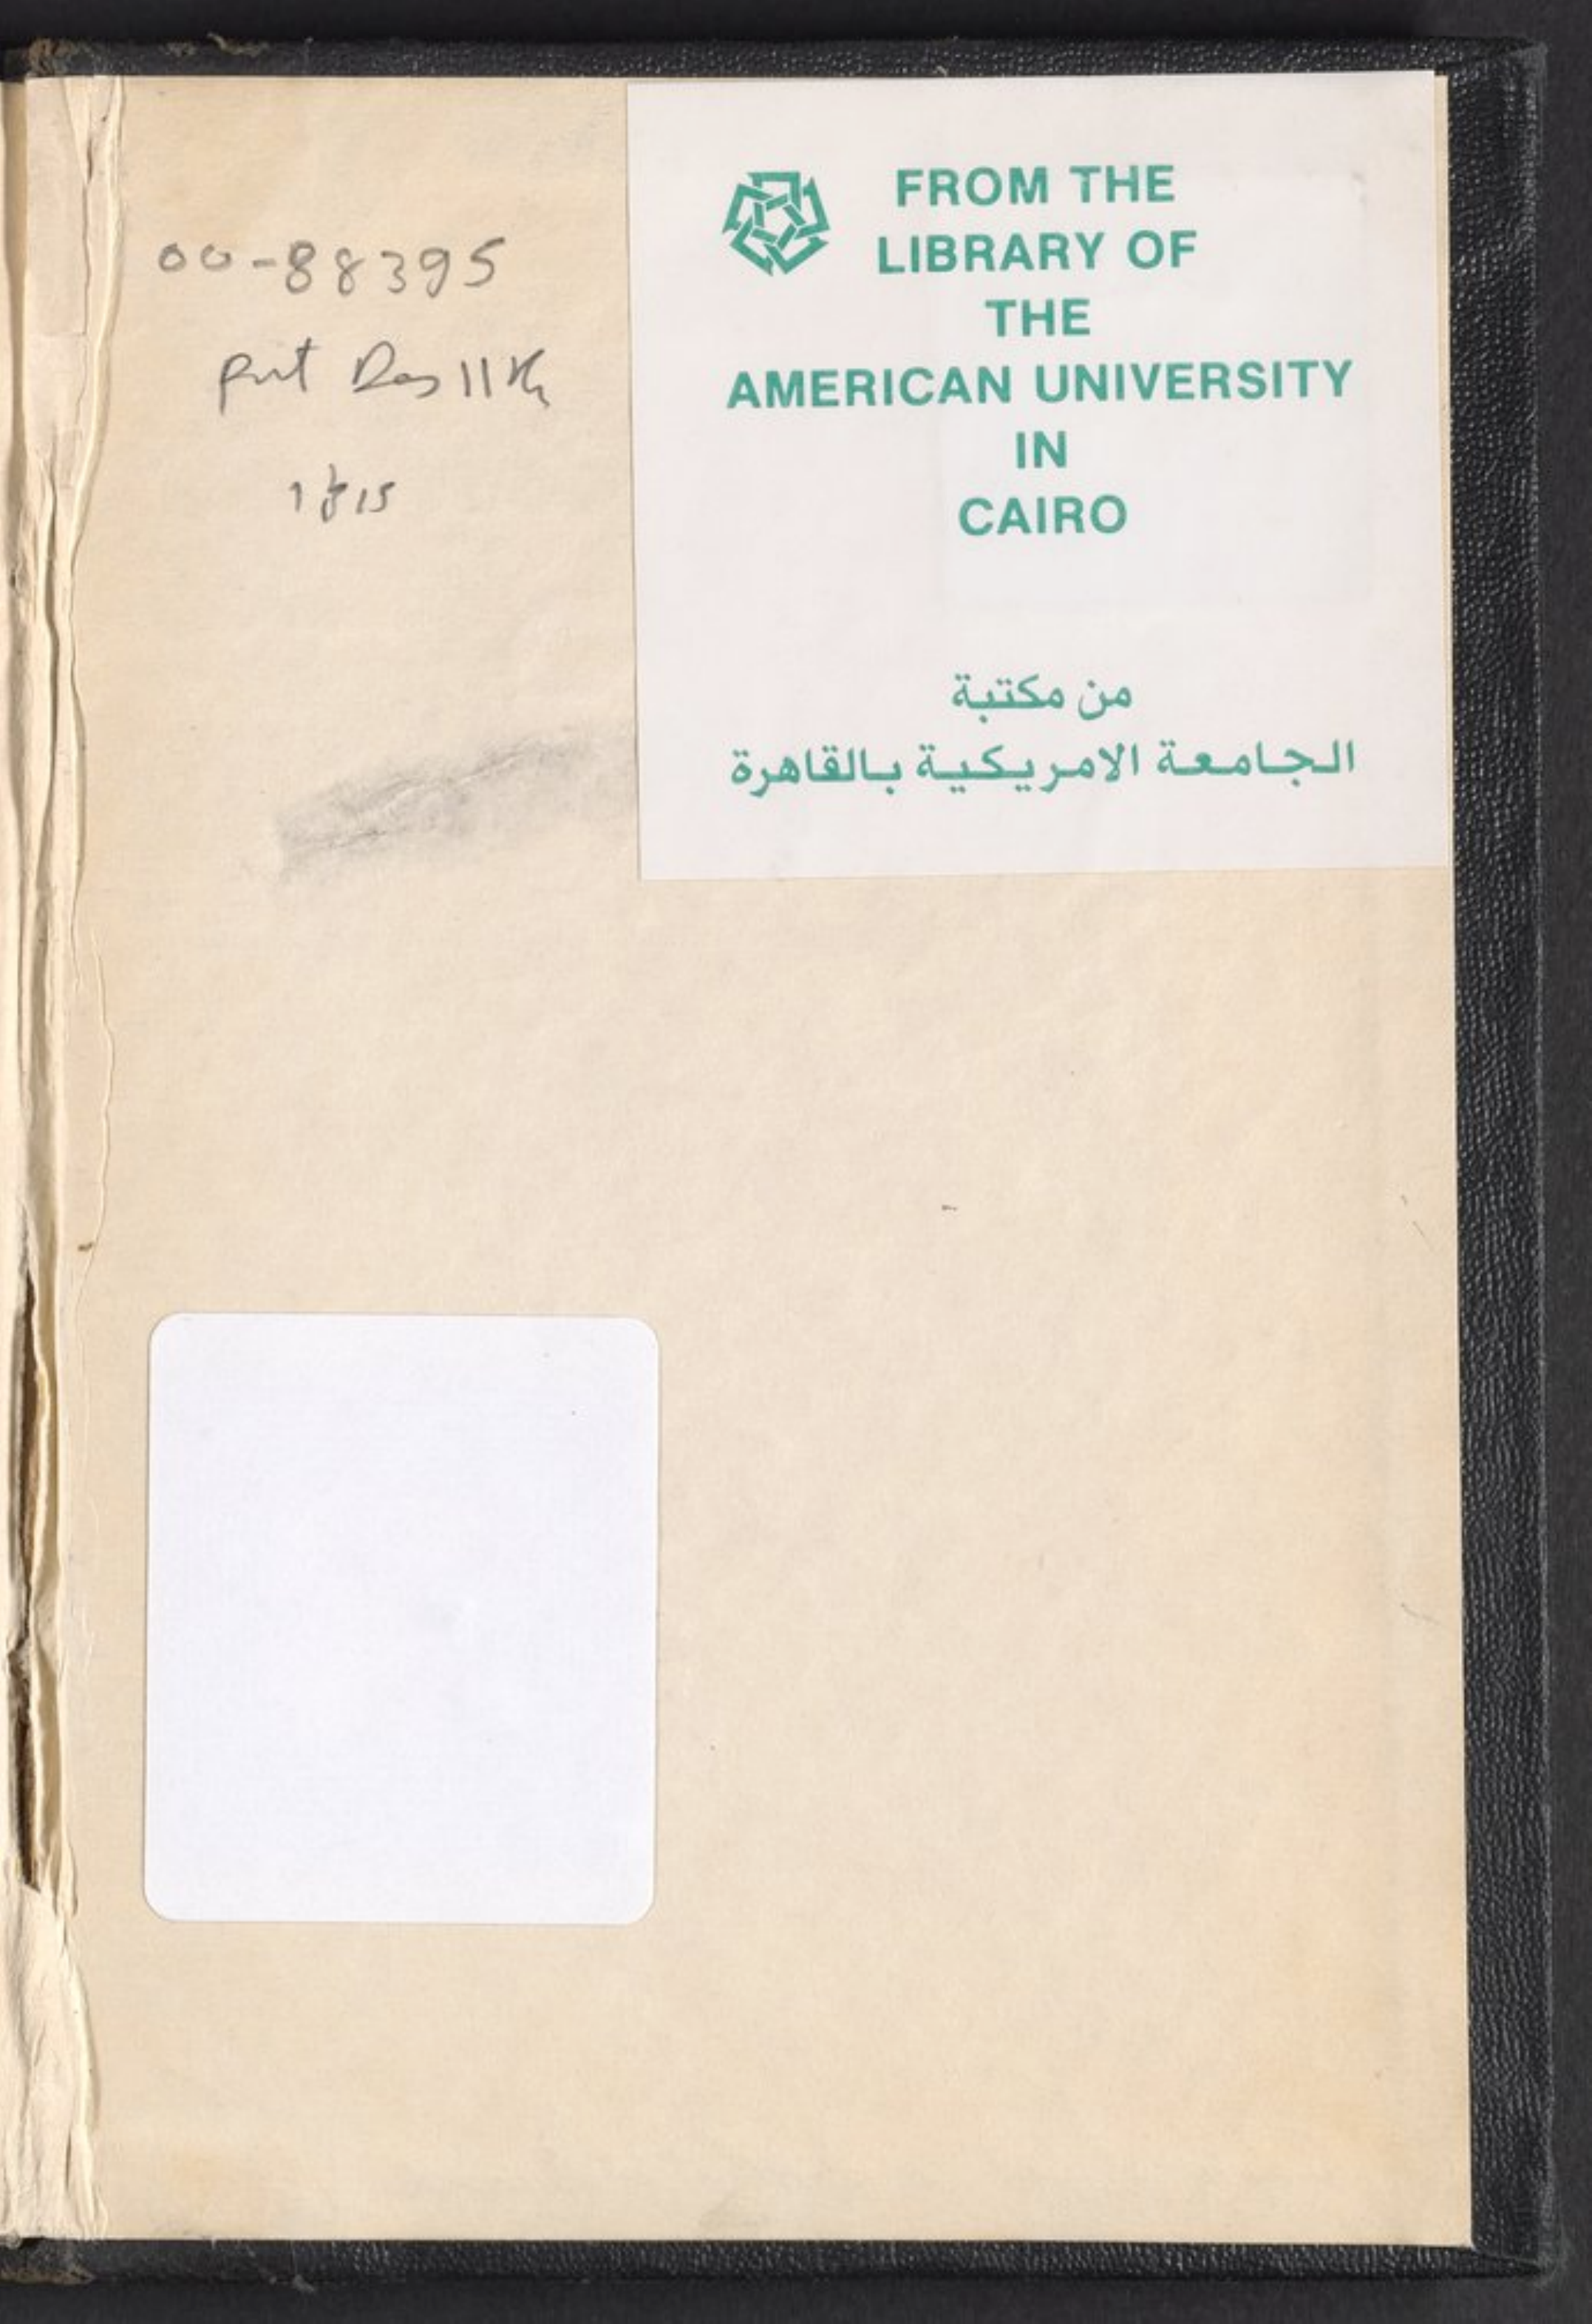 00-88395
11th
1815
FROM THE
LIBRARY OF
THE
AMERICAN UNIVERSITY
IN
CAIRO
من مكتبة
الجامعة الامريكية بالقاهرة